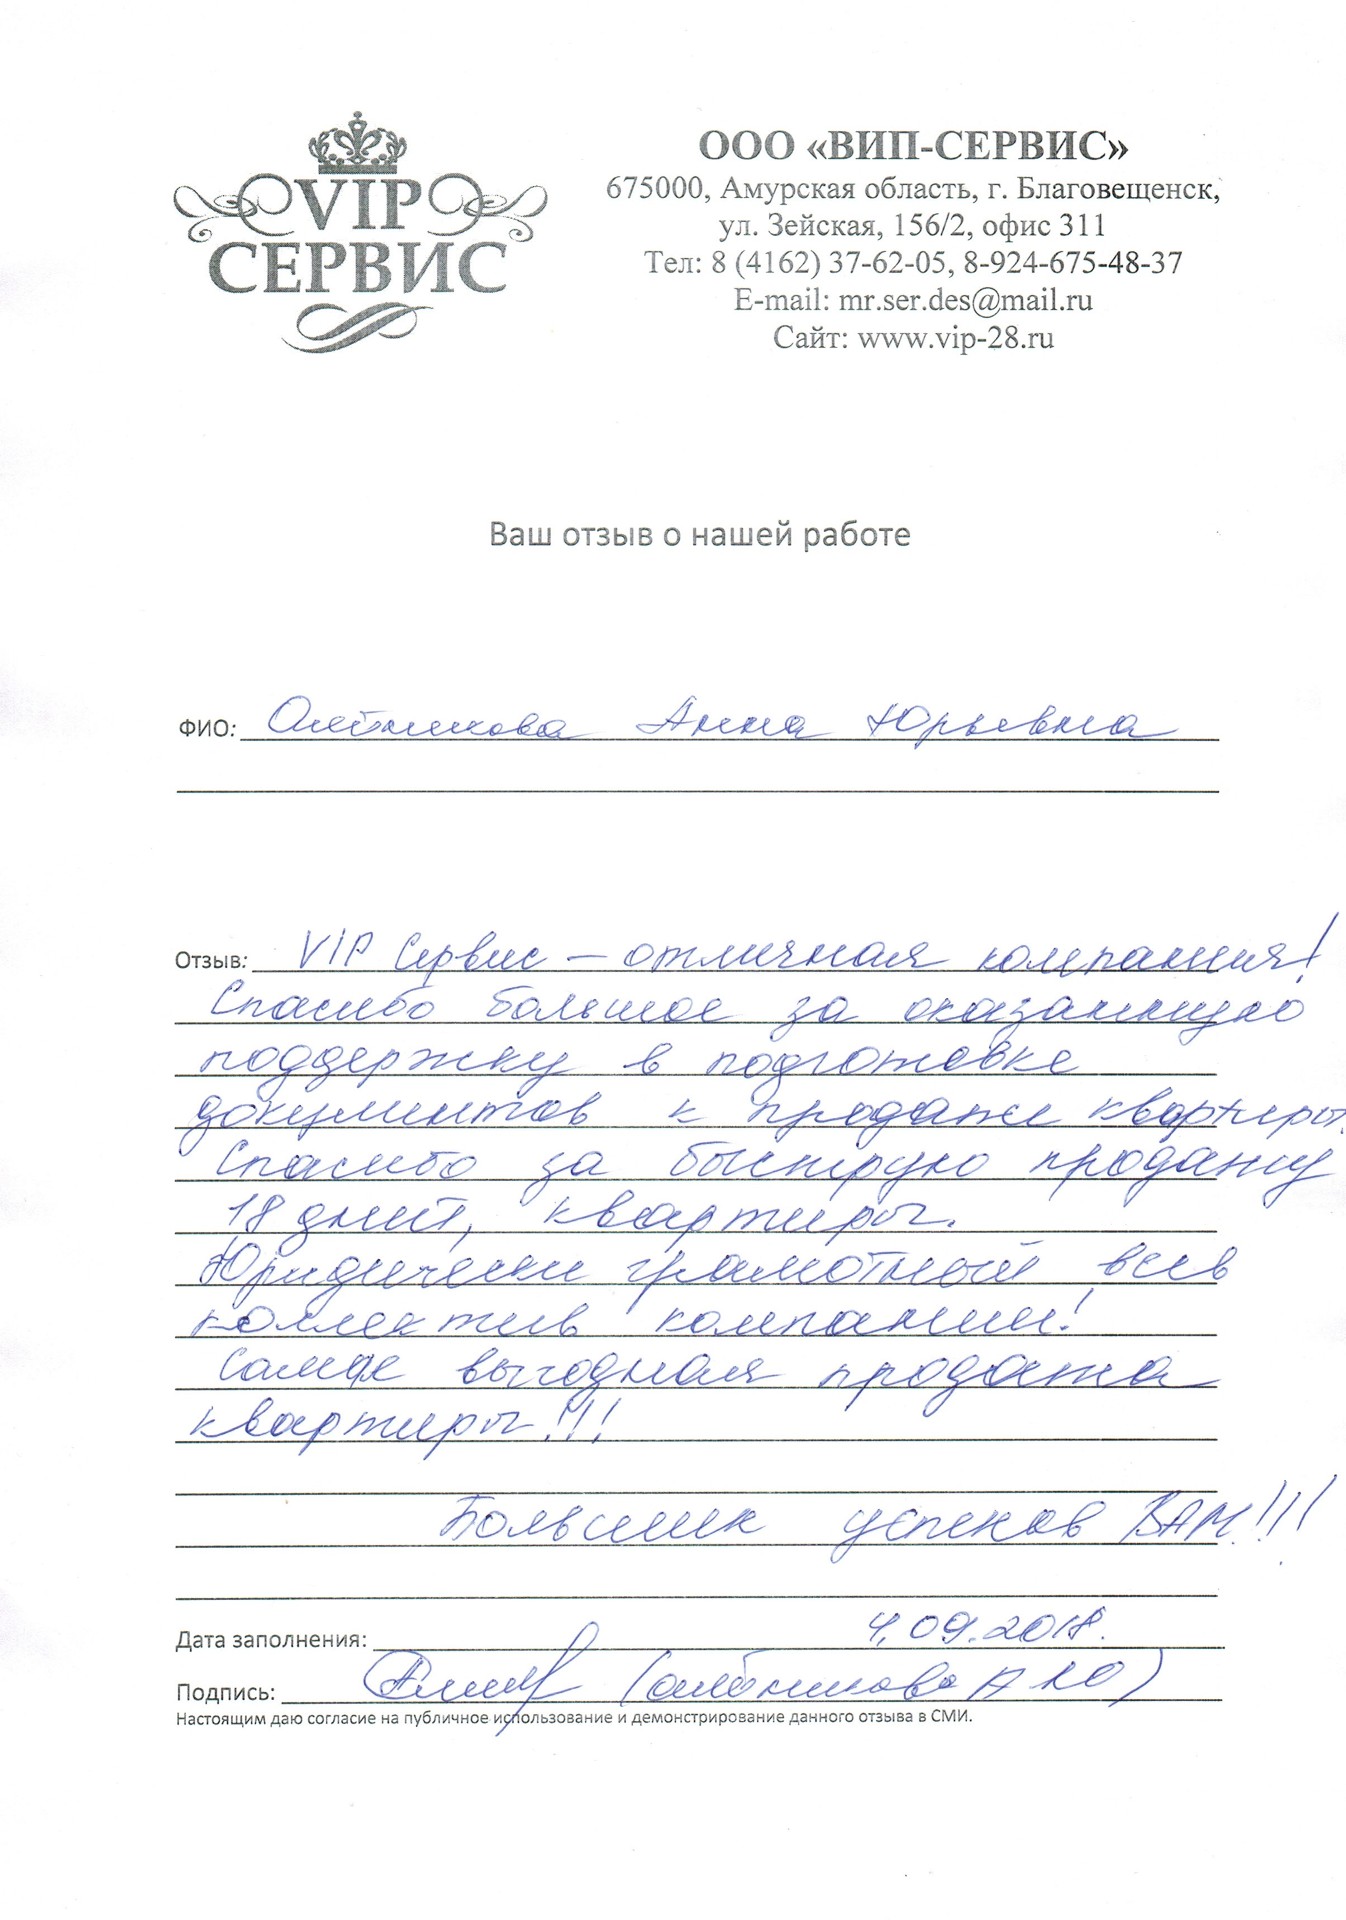 VIP
СЕРВИС
ООО «ВИП-СЕРВИС»
675000, Амурская область, г. Благовещенск,
ул. Зейская, 156/2, офис 311
Тел: 8 (4162) 37-62-05, 8-924-675-48-37
E-mail: mr.ser.des@mail.ru
Сайт: www.vip-28.ru
Ваш отзыв о нашей работе
ФИО: Анна Юрьевна
Отзыв: VIP Сервис – отличная компания!
Спасибо большое за оказанную
поддержку в подготовке
документов к продаже квартиры.
Спасибо за быструю продажу
18 дней, квартиры.
Юридически грамотный весь
коллектив компании!
Самая выгодная продажа
квартиры!!!
Больших успехов ВАМ!!!
Дата заполнения: 4.09.2018.
Подпись:
Настоящим даю согласие на публичное использование и демонстрирование данного отзыва в СМИ.